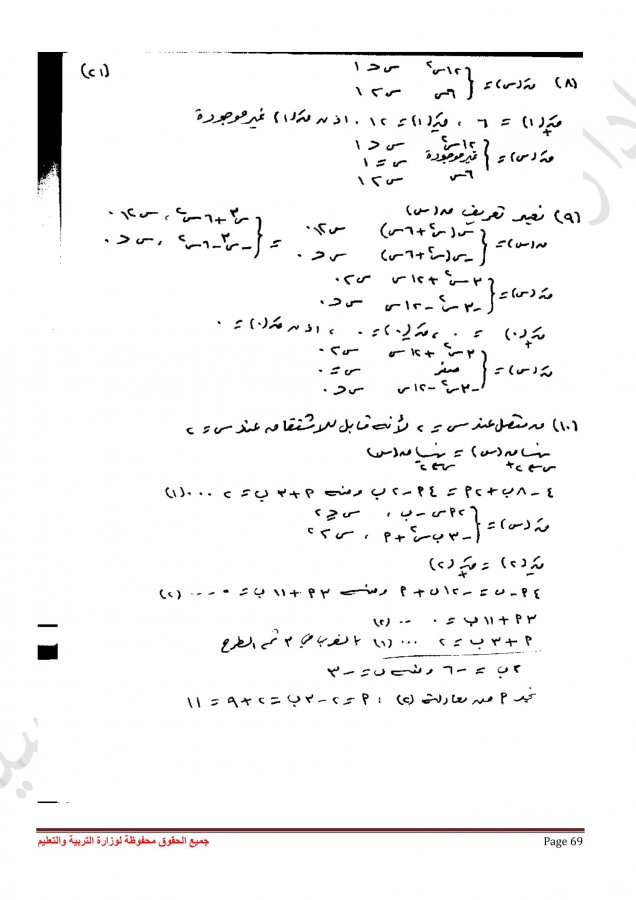 (٢١)
(٨) قَ(س) = { ١٢س٢ س < ١
٦س س > ١
قَ+(١) = ٦ ، قَ-(١) = ١٢ . اذن قَ(١) غير موجودة
قَ(س) = { ١٢س٢ س < ١
غير موجودة س = ١
٦س س > ١
(٩) نعيد تعريف ق(س)
ق(س) = { س(س٢+٦س) س ≥ ٠ = { س٣+٦س٢ ، س ≥ ٠
-س(س٢+٦س) س < ٠ -س٣-٦س٢ ، س < ٠
قَ(س) = { ٣س٢+١٢س س > ٠
-٣س٢-١٢س س < ٠
قَ+(٠) = ٠ ، قَ-(٠) = ٠ ، اذن قَ(٠) = ٠
قَ(س) = { ٣س٢+١٢س س > ٠
صفر س = ٠
-٣س٢-١٢س س < ٠
(١٠) ق متصل عند س = ٢ لأنه قابل للاشتقاق عند س = ٢
نهــا ق(س) = نهــا ق(س)
س←٢+ س←٢-
٤-٨ب+٢م = ٤م-٢ب ومنه م+٣ب = ٢ ...(١)
قَ(س) = { ٢م س - ب ، س ≤ ٢
-٣ب س٢ + م ، س > ٢
قَ-(٢) = قَ+(٢)
٤م-ب = -١٢ب+م ومنه ٣م+١١ب = ٠ ...(٢)
٣م+١١ب = ٠ ...(٢)
م+٣ب = ٢ ...(١) بالضرب في ٣ ثم الطرح
٢ب = -٦ ومنه ب = -٣
نجد م من معادلة (٢) : م = ٢-٣ب = ٢+٩ = ١١
جميع الحقوق محفوظة لوزارة التربية والتعليم
Page 69